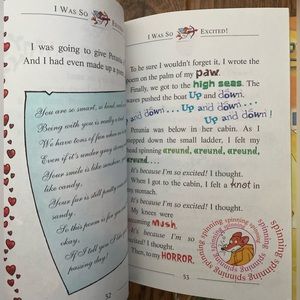 I WAS SO EXCITED!
I was going to give Petunia
And I had even made up a
You are so smart, so kind,
Being with you is really
We have tons of fun when
Even if it's under grey stormy
Your smile is like
like candy,
Your fair is just
sandy.
So this poem is for you
okay,
If I tell you I
passing day!
52
I WAS SO EXCITED!
To be sure I wouldn't forget it, I wrote
the poem on the palm of my paw.
Finally, we got to the high seas. The
waves pushed the boat Up and down.
... Up and down ... Up and down ...
Up and down!
Petunia was below in her cabin. As I
stepped down the small ladder, I felt my
head spinning around, around, around,
around...
It's because I'm so excited! I thought.
When I got to the cabin, I felt a knot in
my stomach.
It's because I'm so excited! I thought.
My knees were
turning
mush.
It's because I'm so
excited! I thought.
Then, to my HORROR,
spinning spinning spinning spinning
53